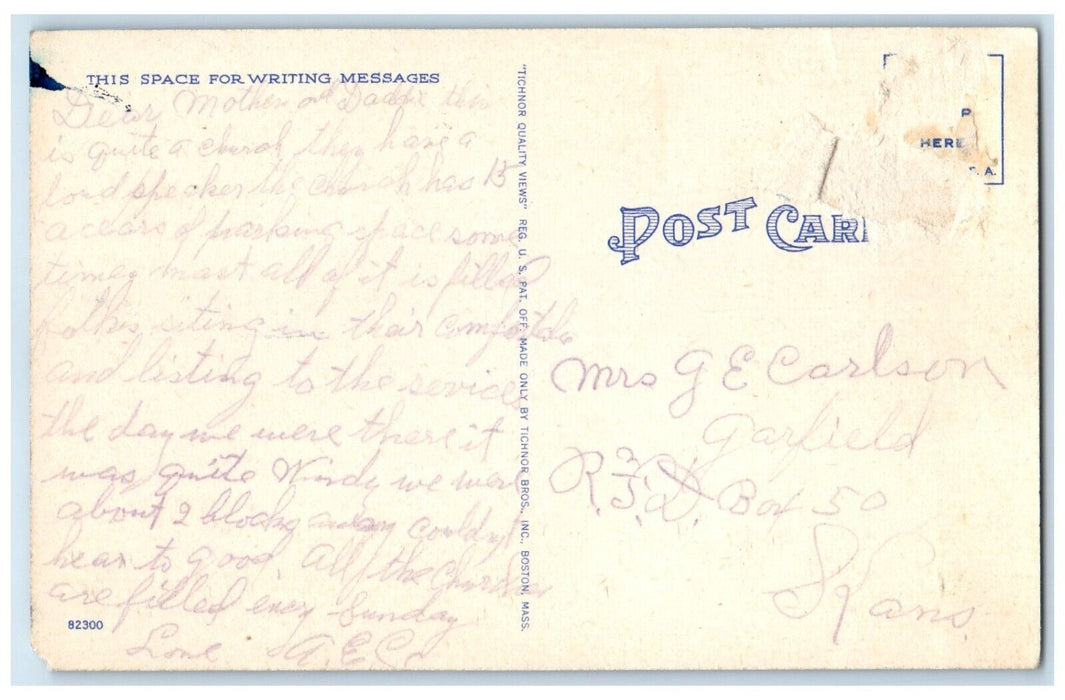 THIS SPACE FOR WRITING MESSAGES
Dear Mother and Daddie this
is quite a church they have a
lord speaker the church has 15
acears of parking space some
times mast all of it is filled
folkes siting in their
and listing to the sevice
the day we were there it
was quite Windy we were
about 2 blocks away couldn't
hear to good. All the Churches
are filled every Sunday
Love A.E.C.
82300
"TICHNOR QUALITY VIEWS" REG. U. S. PAT. OFF. MADE ONLY BY TICHNOR BROS., INC., BOSTON, MASS.
P
HERE
. A.
POST CAR
Mrs G E Carlson
Garfield
R.F.D. Box 50
Kans